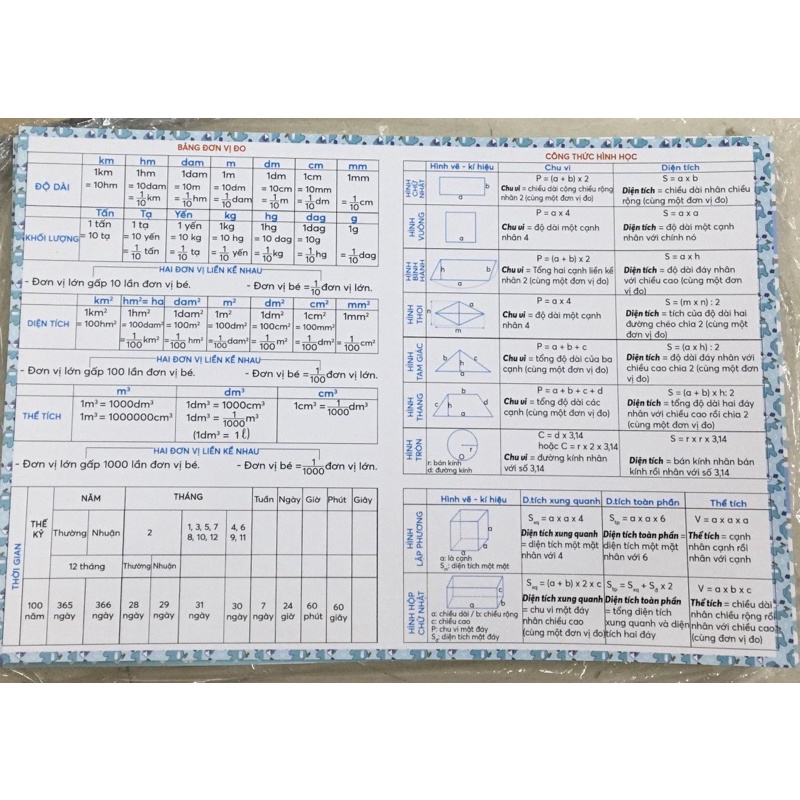 BẢNG ĐƠN VỊ ĐO
km hm dam m dm cm mm
ĐỘ DÀI
1km 1hm 1dam 1m 1dm 1cm 1mm
= 10hm = 10dam = 10m = 10dm = 10cm = 10mm
= 1/10 km = 1/10 hm = 1/10 dam = 1/10 m = 1/10 dm = 1/10 cm
Tấn Tạ Yến kg hg dag g
KHỐI LƯỢNG
1 tấn 1 tạ 1 yến 1kg 1hg 1dag 1g
= 10 tạ = 10 yến = 10 kg = 10 hg = 10 dag = 10g
= 1/10 tấn = 1/10 tạ = 1/10 yến = 1/10 kg = 1/10 hg = 1/10 dag
HAI ĐƠN VỊ LIỀN KỀ NHAU
- Đơn vị lớn gấp 10 lần đơn vị bé. - Đơn vị bé = 1/10 đơn vị lớn.
km² hm²= ha dam² m² dm² cm² mm²
DIỆN TÍCH
1km² 1hm² 1dam² 1m² 1dm² 1cm² 1mm²
= 100hm² = 100dam² = 100m² = 100dm² = 100cm² = 100mm²
= 1/100 km² = 1/100 hm² = 1/100 dam² = 1/100 m² = 1/100 dm² = 1/100 cm²
HAI ĐƠN VỊ LIỀN KỀ NHAU
- Đơn vị lớn gấp 100 lần đơn vị bé. - Đơn vị bé = 1/100 đơn vị lớn.
m³ dm³ cm³
THỂ TÍCH
1m³ = 1000dm³ 1dm³ = 1000cm³ 1cm³ = 1/1000 dm³
1m³ = 1000000cm³ 1dm³ = 1/1000 m³
(1dm³ = 1 ℓ)
HAI ĐƠN VỊ LIỀN KỀ NHAU
- Đơn vị lớn gấp 1000 lần đơn vị bé. - Đơn vị bé = 1/1000 đơn vị lớn.
THỜI GIAN
THẾ KỶ
NĂM THÁNG Tuần Ngày Giờ Phút Giây
Thường Nhuận 2 1, 3, 5, 7 4, 6
8, 10, 12 9, 11
12 tháng Thường Nhuận
100 365 366 28 29 31 30 7 24 60 60
năm ngày ngày ngày ngày ngày ngày ngày giờ phút giây
CÔNG THỨC HÌNH HỌC
Hình vẽ - kí hiệu Chu vi Diện tích
HÌNH CHỮ NHẬT
b
a
P = (a + b) x 2
Chu vi = chiều dài cộng chiều rộng
nhân 2 (cùng một đơn vị đo)
S = a x b
Diện tích = chiều dài nhân chiều
rộng (cùng một đơn vị đo)
HÌNH VUÔNG
a
P = a x 4
Chu vi = độ dài một cạnh
nhân 4
S = a x a
Diện tích = độ dài một cạnh
nhân với chính nó
HÌNH BÌNH HÀNH
h b
a
P = (a + b) x 2
Chu vi = Tổng hai cạnh liền kề
nhân 2 (cùng một đơn vị đo)
S = a x h
Diện tích = độ dài đáy nhân
với chiều cao (cùng một đơn
vị đo)
HÌNH THOI
n a
m
P = a x 4
Chu vi = độ dài một cạnh
nhân 4
S = (m x n) : 2
Diện tích = tích của độ dài hai
đường chéo chia 2 (cùng một
đơn vị đo)
HÌNH TAM GIÁC
b h c
a
P = a + b + c
Chu vi = tổng độ dài của ba
cạnh (cùng một đơn vị đo)
S = (a x h) : 2
Diện tích = độ dài đáy nhân với
chiều cao chia 2 (cùng một
đơn vị đo)
HÌNH THANG
b
c h d
a
P = a + b + c + d
Chu vi = tổng độ dài các
cạnh (cùng một đơn vị đo)
S = (a + b) x h: 2
Diện tích = tổng độ dài hai đáy
nhân với chiều cao rồi chia 2
(cùng một đơn vị đo)
HÌNH TRÒN
r
r: bán kính
d: đường kính
C = d x 3,14
hoặc C = r x 2 x 3,14
Chu vi = đường kính nhân
với số 3,14
S = r x r x 3,14
Diện tích = bán kính nhân bán
kính rồi nhân với số 3,14
Hình vẽ - kí hiệu D.tích xung quanh D.tích toàn phần Thể tích
HÌNH LẬP PHƯƠNG
a
a: là cạnh
: diện tích một mặt
Sxq = a x a x 4
Diện tích xung quanh
= diện tích một mặt
nhân với 4
Stp = a x a x 6
Diện tích toàn phần =
diện tích một mặt
nhân với 6
V = a x a x a
Thể tích = cạnh
nhân cạnh rồi
nhân với cạnh
HÌNH HỘP CHỮ NHẬT
c
b
a
a: chiều dài / b: chiều rộng
c: chiều cao
P: chu vi mặt đáy
Sđ: diện tích mặt đáy
Sxq = (a + b) x 2 x c
Diện tích xung quanh
= chu vi mặt đáy
nhân chiều cao
(cùng một đơn vị đo)
Stp = Sxq + Sđ x 2
Diện tích toàn phần
= tổng diện tích
xung quanh và diện
tích hai đáy
V = a x b x c
Thể tích = chiều dài
nhân chiều rộng rồi
nhân với chiều cao
(cùng đơn vị đo)